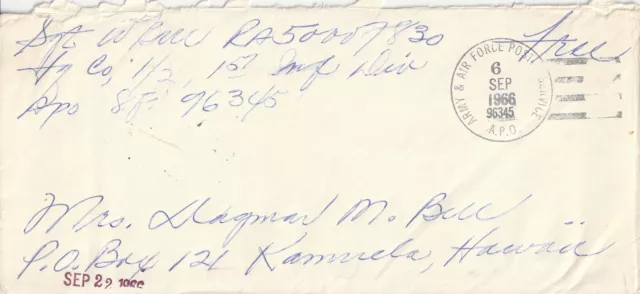 Sgt W Bell RA50007830
Hq Co, 1/2, 1st Inf Div
Apo S.F. 96345
Free
ARMY & AIR FORCE POSTAL SERVICE
6
SEP
1966
96345
A.P.O.
Mrs. Dagmar M. Bell
P.O. Box 121 Kamuela, Hawaii
SEP 22 1966